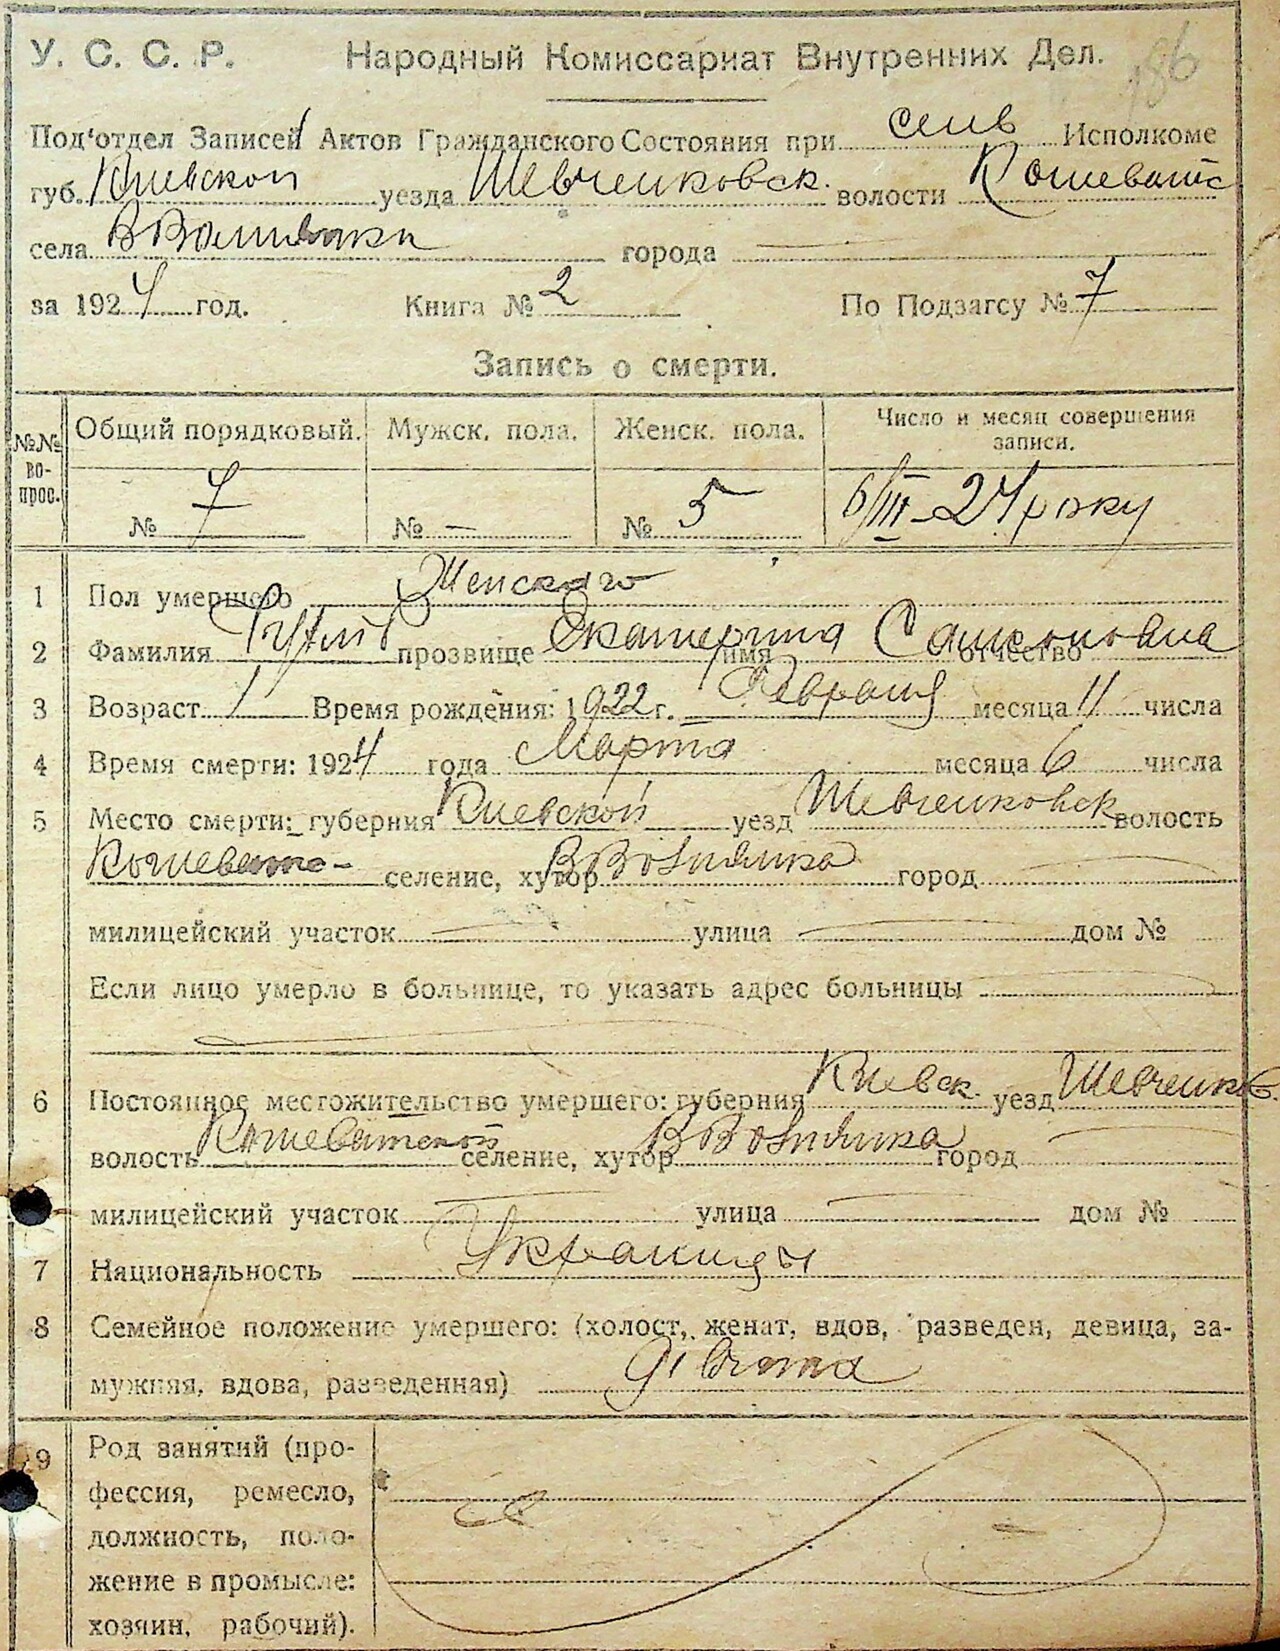 186
У. С. С. Р. Народный Комиссариат Внутренних Дел.
Под'отдел Записей Актов Гражданского Состояния при Исполкоме
губ. Киевской уезда Шевченковск. волости Кошеватс
села города
за 1924 год. Книга № 2 По Подзагсу № 7
Запись о смерти.
№№ вопрос. Общий порядковый. Мужск. пола. Женск. пола. Число и месяц совершения записи.
№ 7 № — № 5 6/III-24 року
1 Пол умершего Женского
2 Фамилия прозвище Екатерина имя Самсоновна отчество
3 Возраст 1 Время рождения: 1922 г. Февраля месяца 11 числа
4 Время смерти: 1924 года Марта месяца 6 числа
5 Место смерти: губерния Киевской уезд Шевченковск волость
Кошеватс- селение, хутор город
милицейский участок улица дом №
Если лицо умерло в больнице, то указать адрес больницы
6 Постоянное местожительство умершего: губерния Киевск. уезд Шевченков.
волость Кошеватской селение, хутор город
милицейский участок улица дом №
7 Национальность
8 Семейное положение умершего: (холост, женат, вдов, разведен, девица, за-
мужняя, вдова, разведенная) дівчина
9 Род занятий (про-
фессия, ремесло,
должность, поло-
жение в промысле:
хозяин, рабочий).